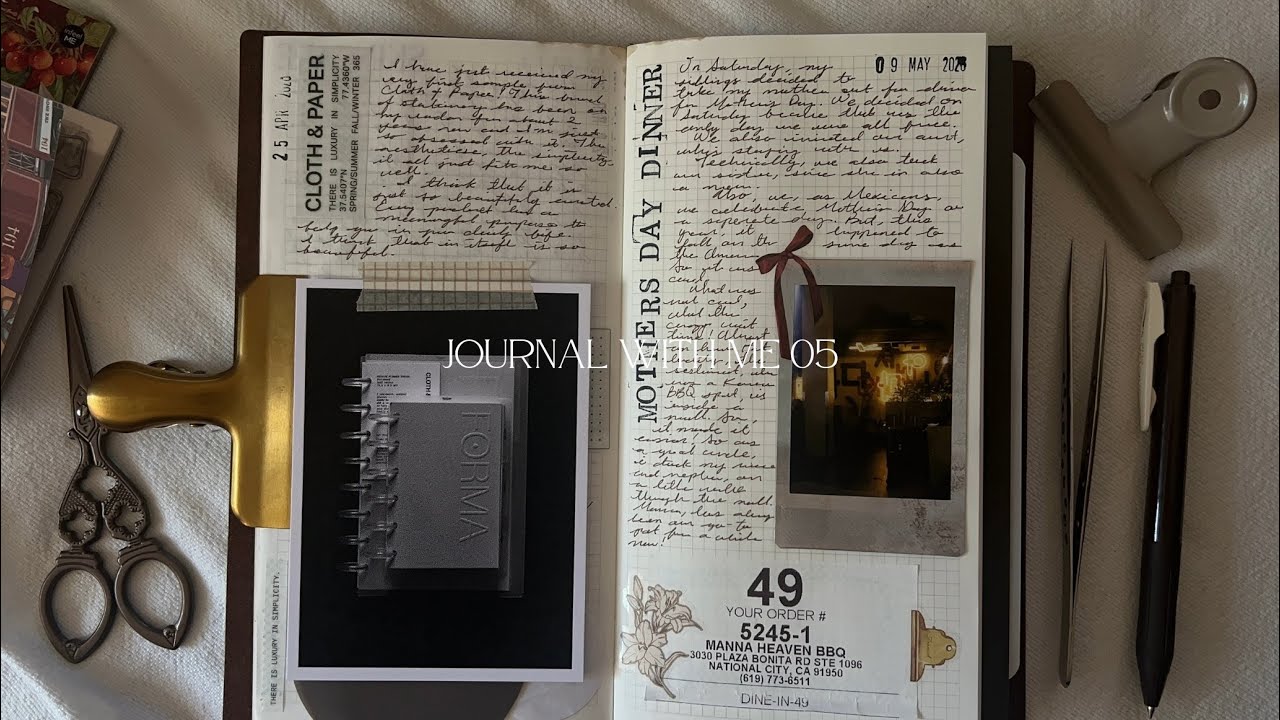 infeel
ME
25 APR 2026
CLOTH & PAPER
THERE IS LUXURY IN SIMPLICITY
37.5407°N 77.4360°W
SPRING/SUMMER FALL/WINTER 365
I have just received my
very first sample from
Cloth & Paper. This brand
of stationery has been on
my radar for about 2
years now and I'm just
so obsessed with it. The
aesthetics, the simplicity,
it all just fits me so
well.
I think that it is
just so beautifully curated.
Every product has a
meaningful purpose to
help you in your daily life.
I think that in itself is so
beautiful.
CLOTH &
FORMA
THERE IS LUXURY IN SIMPLICITY.
JOURNAL WITH ME 05
MOTHERS DAY DINNER
09 MAY 2026
On Saturday, my
siblings decided to
take my mother out for dinner
for Mothers Day. We decided on
Saturday because that was the
only day we were all free.
We also invited our aunt,
who's staying with us.
Technically, we also took
our sister, since she is also
a mom.
Also, we, as Mexicans,
we celebrate Mother's Day on
a separate day. But, this
year, it happened to
fall on the same day as
the American
So it was
cool.
What was
not cool,
was the
crazy wait
time!
was a Korean
BBQ spot, us
inside a
mall. So,
it made it
easier! So as
a good uncle,
I took my niece
and nephew, on
a little walk
through the mall.
Mamma, has always
been our go-to
spot for a while
now!
49
YOUR ORDER #
5245-1
MANNA HEAVEN BBQ
3030 PLAZA BONITA RD STE 1096
NATIONAL CITY, CA 91950
(619) 773-6511
DINE-IN-49